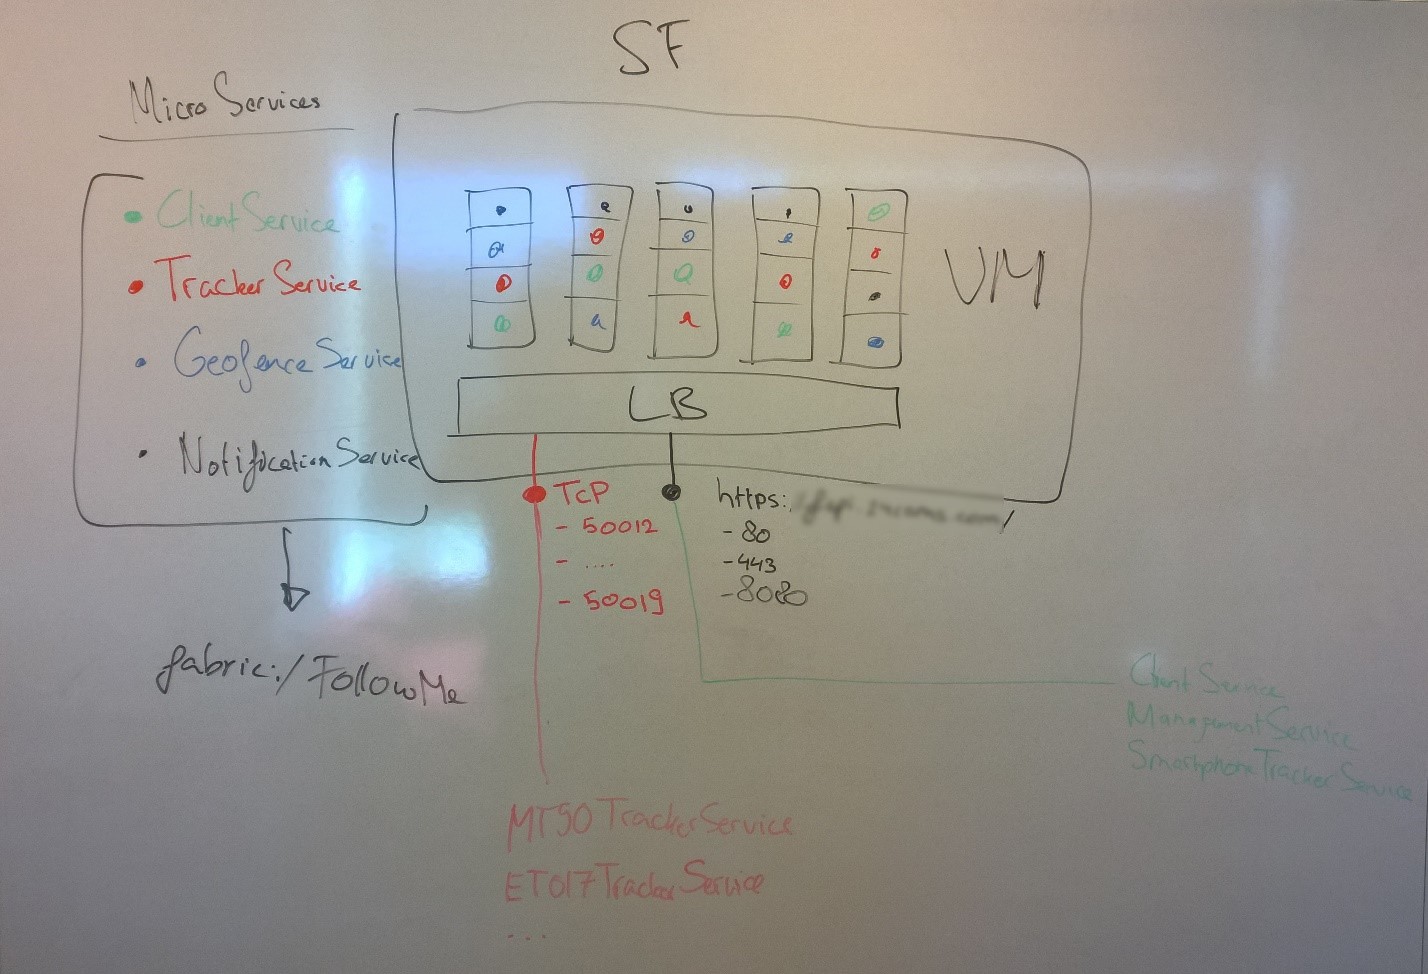 SF
MicroServices
ClientService
TrackerService
GeofenceService
NotificationService
fabric:/FollowMe
VM
LB
TCP
- 50012
- ....
- 50019
https:
/
- 80
-443
-8080
ClientService
ManagementService
SmartphoneTrackerService
MT90TrackerService
ET017TrackerService
...